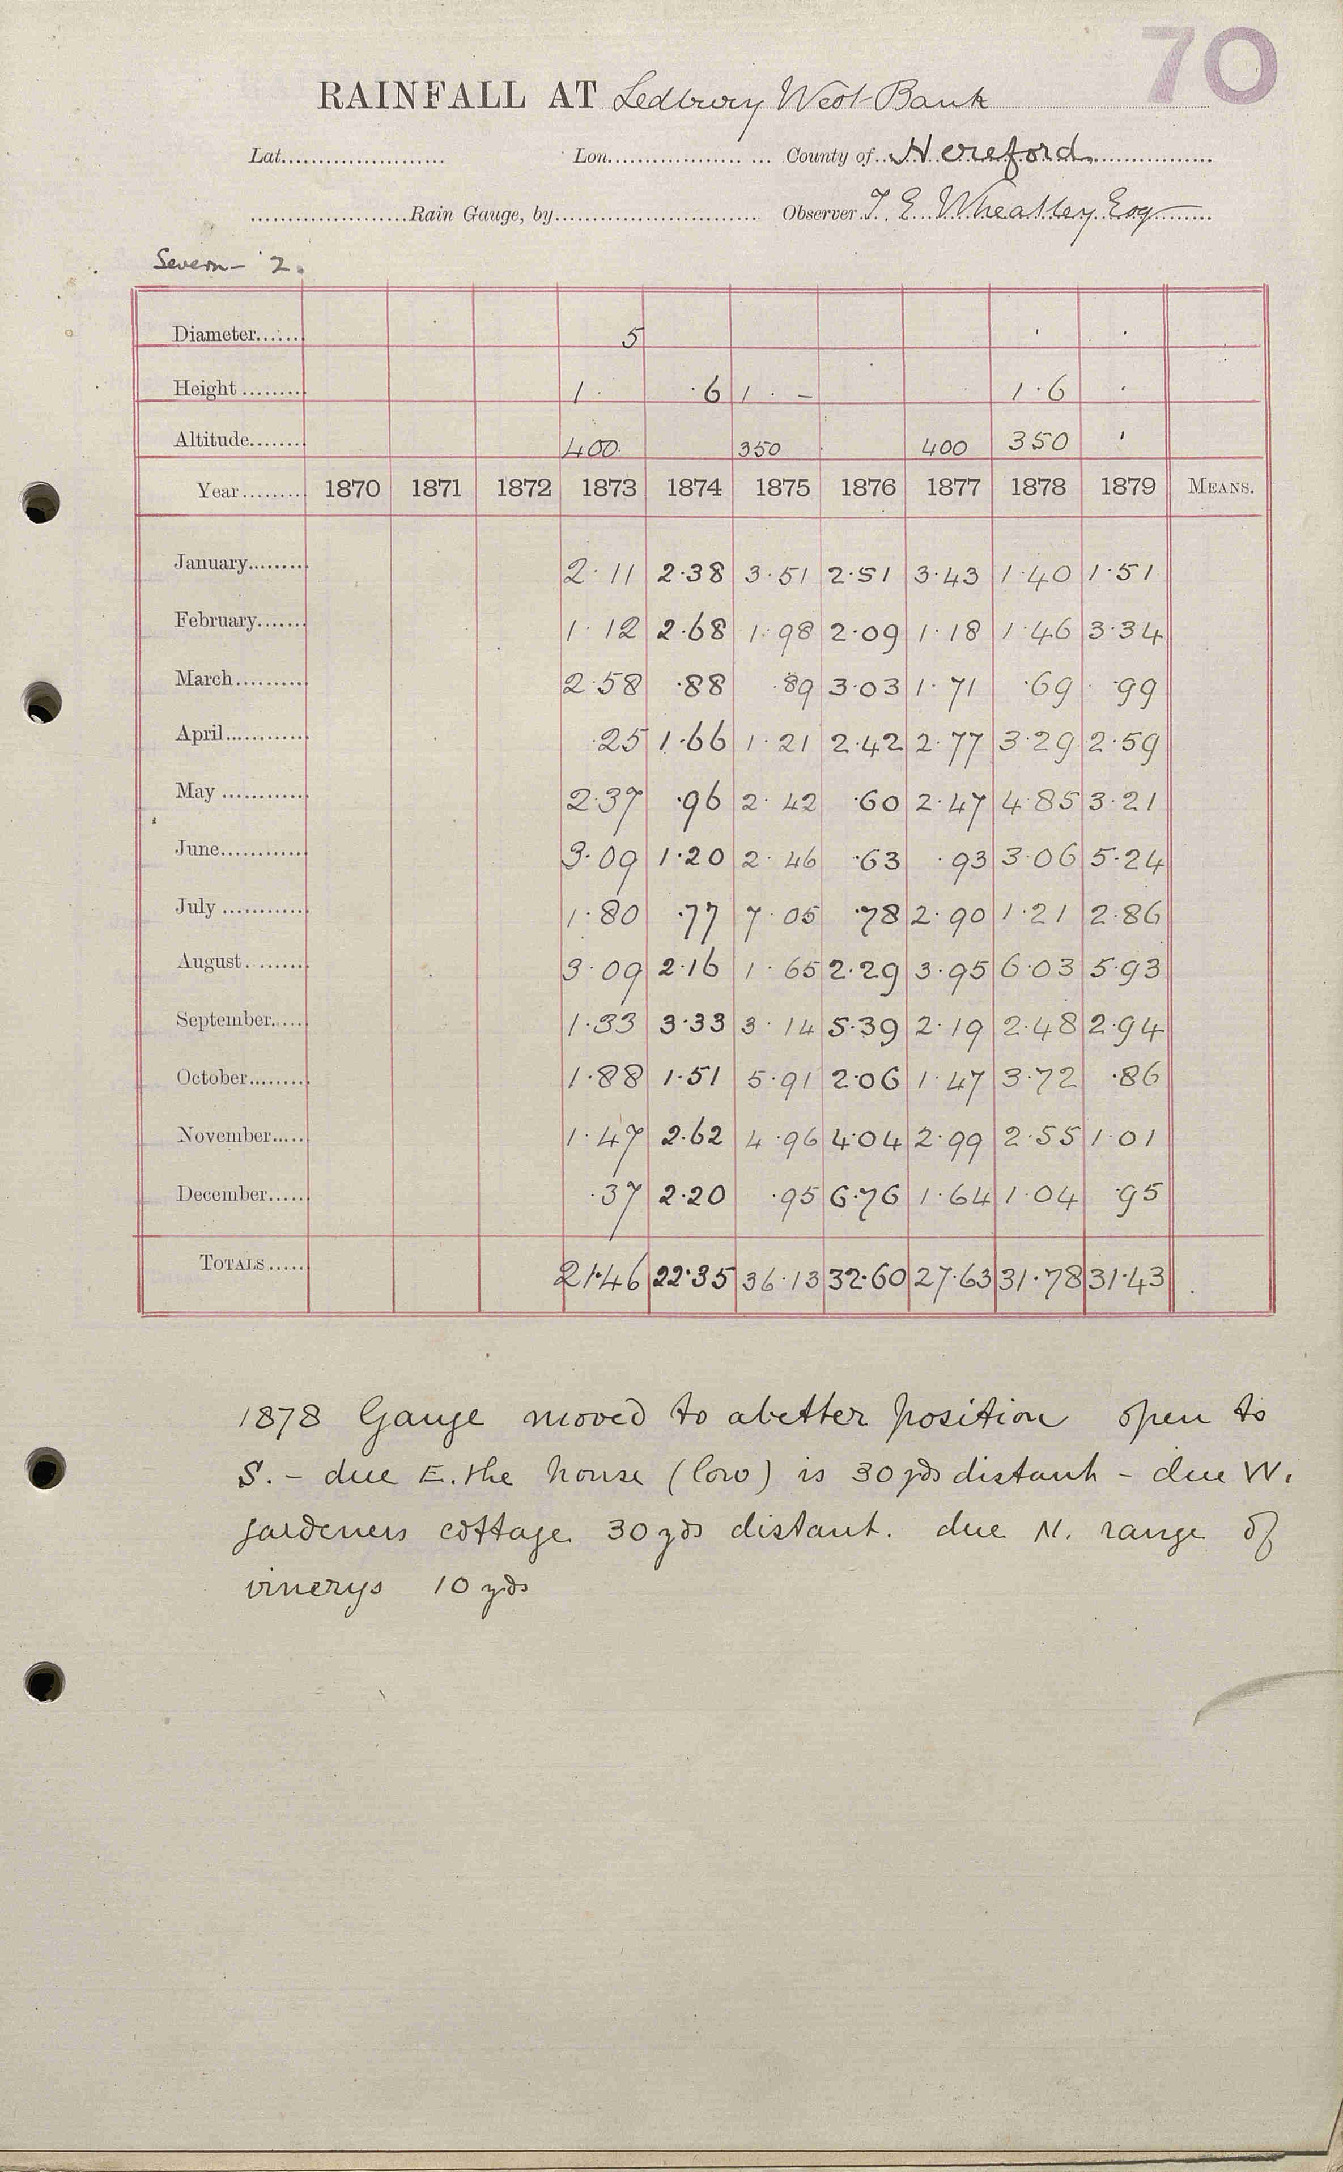 70
RAINFALL AT Ledbury West Bank
Lat. Lon. County of Hereford
Rain Gauge, by Observer T. E. Wheatley Esq
Severn - 2.
Diameter 5
Height 1 · ·6 1 · - 1·6 ·
Altitude 400 350 400 350 '
Year 1870 1871 1872 1873 1874 1875 1876 1877 1878 1879 MEANS.
January 2·11 2·38 3·51 2·51 3·43 1·40 1·51
February 1·12 2·68 1·98 2·09 1·18 1·46 3·34
March 2·58 ·88 ·89 3·03 1·71 ·69 ·99
April ·25 1·66 1·21 2·42 2·77 3·29 2·59
May 2·37 ·96 2·42 ·60 2·47 4·85 3·21
June 3·09 1·20 2·46 ·63 ·93 3·06 5·24
July 1·80 ·77 7·05 ·78 2·90 1·21 2·86
August 3·09 2·16 1·65 2·29 3·95 6·03 5·93
September 1·33 3·33 3·14 5·39 2·19 2·48 2·94
October 1·88 1·51 5·91 2·06 1·47 3·72 ·86
November 1·47 2·62 4·96 4·04 2·99 2·55 1·01
December ·37 2·20 ·95 6·76 1·64 1·04 ·95
TOTALS 21·46 22·35 36·13 32·60 27·63 31·78 31·43
1878 Gauge moved to a better position open to
S. - due E. the house (low) is 30 yds distant - due W.
gardeners cottage 30 yds distant. due N. range of
vinerys 10 yds